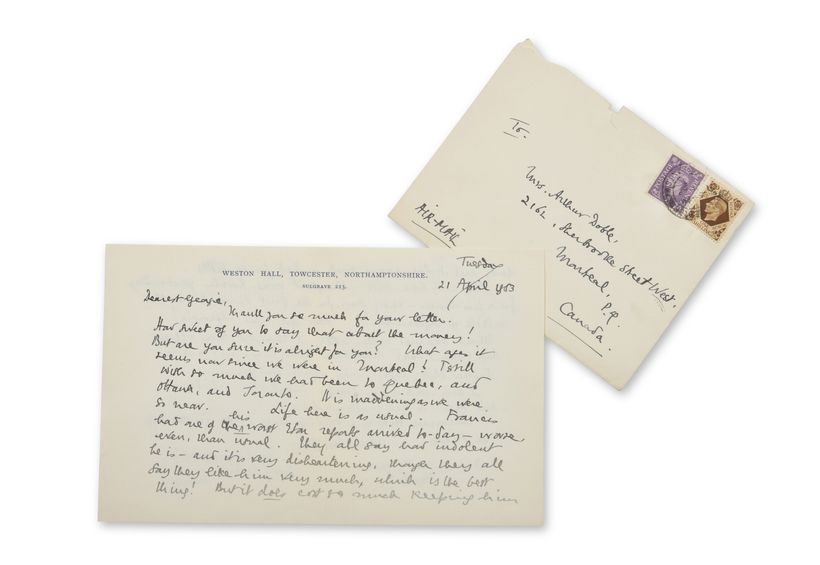 To.
Mrs. Arthur Doble,
2162, Sherbrooke Street West,
Montreal,
P.Q.
Canada.
AIR-MAIL
WESTON HALL, TOWCESTER, NORTHAMPTONSHIRE.
SULGRAVE 213.
Tuesday
21 April 1953
Dearest Georgie,
Thank you so much for your letter.
How sweet of you to say that about the money!
But are you sure it is alright for you? What ages it
seems now since we were in Montreal! I still
wish so much we had been to Quebec, and
Ottawa, and Toronto. It is maddening as we were
so near. Life here is as usual. Francis
had one of his worst Eton reports arrived to-day – worse
even, than usual. They all say how indolent
he is – and it is very disheartening, though they all
say they like him very much, which is the best
thing! But it does cost so much keeping him